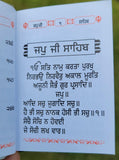 ਜਪੁ ਜੀ ਸਾਹਿਬ
ੴ ਸਤਿ ਨਾਮੁ ਕਰਤਾ ਪੁਰਖੁ
ਨਿਰਭਉ ਨਿਰਵੈਰੁ ਅਕਾਲ ਮੂਰਤਿ
ਅਜੂਨੀ ਸੈਭੰ ਗੁਰ ਪ੍ਰਸਾਦਿ॥
ਜਪੁ॥
ਆਦਿ ਸਚੁ ਜੁਗਾਦਿ ਸਚੁ॥
ਹੈ ਭੀ ਸਚੁ ਨਾਨਕ ਹੋਸੀ ਭੀ ਸਚੁ॥੧॥
ਸੋਚੈ ਸੋਚਿ ਨ ਹੋਵਈ
ਜੇ ਸੋਚੀ ਲਖ ਵਾਰ॥